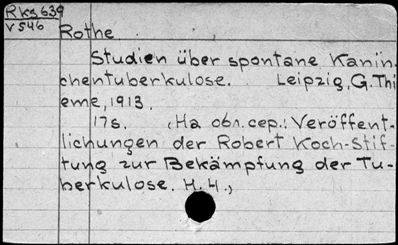 Rks 639
V 546
Rothe
Studien über spontane Kanin-
chentuberkulose. Leipzig, G. Thi
eme, 1913.
17s. (На обл. сер.: Veröffent-
lichungen der Robert Koch-Stif-
tung zur Bekämpfung der Tu-
berkulose. H. 4.)